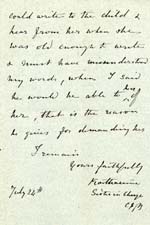 could write to the child &
hear from her when she
was old enough to write
& must have misunderstood
my words, when I said
he would be able to
her, that is the reason
he gives for demanding her
I remain
Yours faithfully
Katharine
Sister in Charge
July 24th